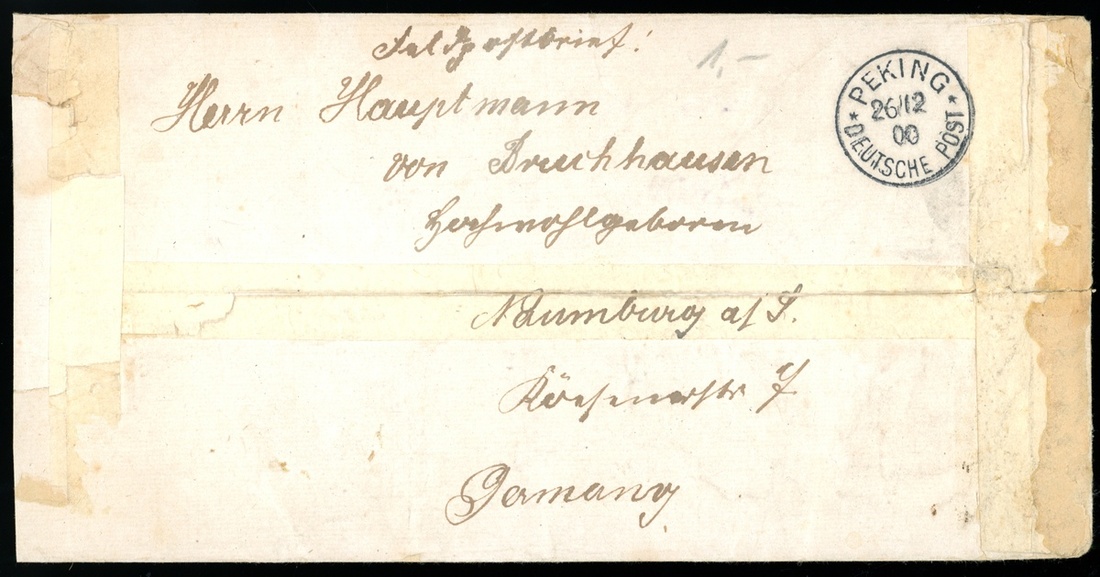 Feldpostbrief!
1,-
Herrn Hauptmann
von Bruchhausen
Hochwohlgeborn
Naumburg a/S.
Kösenerstr 7
Germany
PEKING
26/12
00
* DEUTSCHE POST *